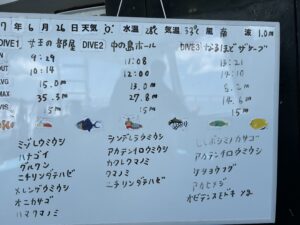 7年6月26日 天気 水温 28℃ 気温 33℃ 風 南 波 1.0m
DIVE1 サ王の部屋 DIVE2 中の島ホール DIVE3 なるほど ザ ケーブ
IN 9:29 11:08 13:21
OUT 10:14 12:00 14:10
AVG 15.0m 13.0m 8.2m
MAX 35.3m 27.8m 14.6m
VIS 15m 15m 15m
ミゾレウミウシ シンデレラウミウシ
ハナゴイ アカテンイロウミウシ アカテンイロウミウシ
グルクン カクレクマノミ リュウキュウ
ニチリンダテハゼ クマノミ アカヒメジ
メレンゲウミウシ ニチリンダテハゼ
オニカサゴ
ハマクマノミ